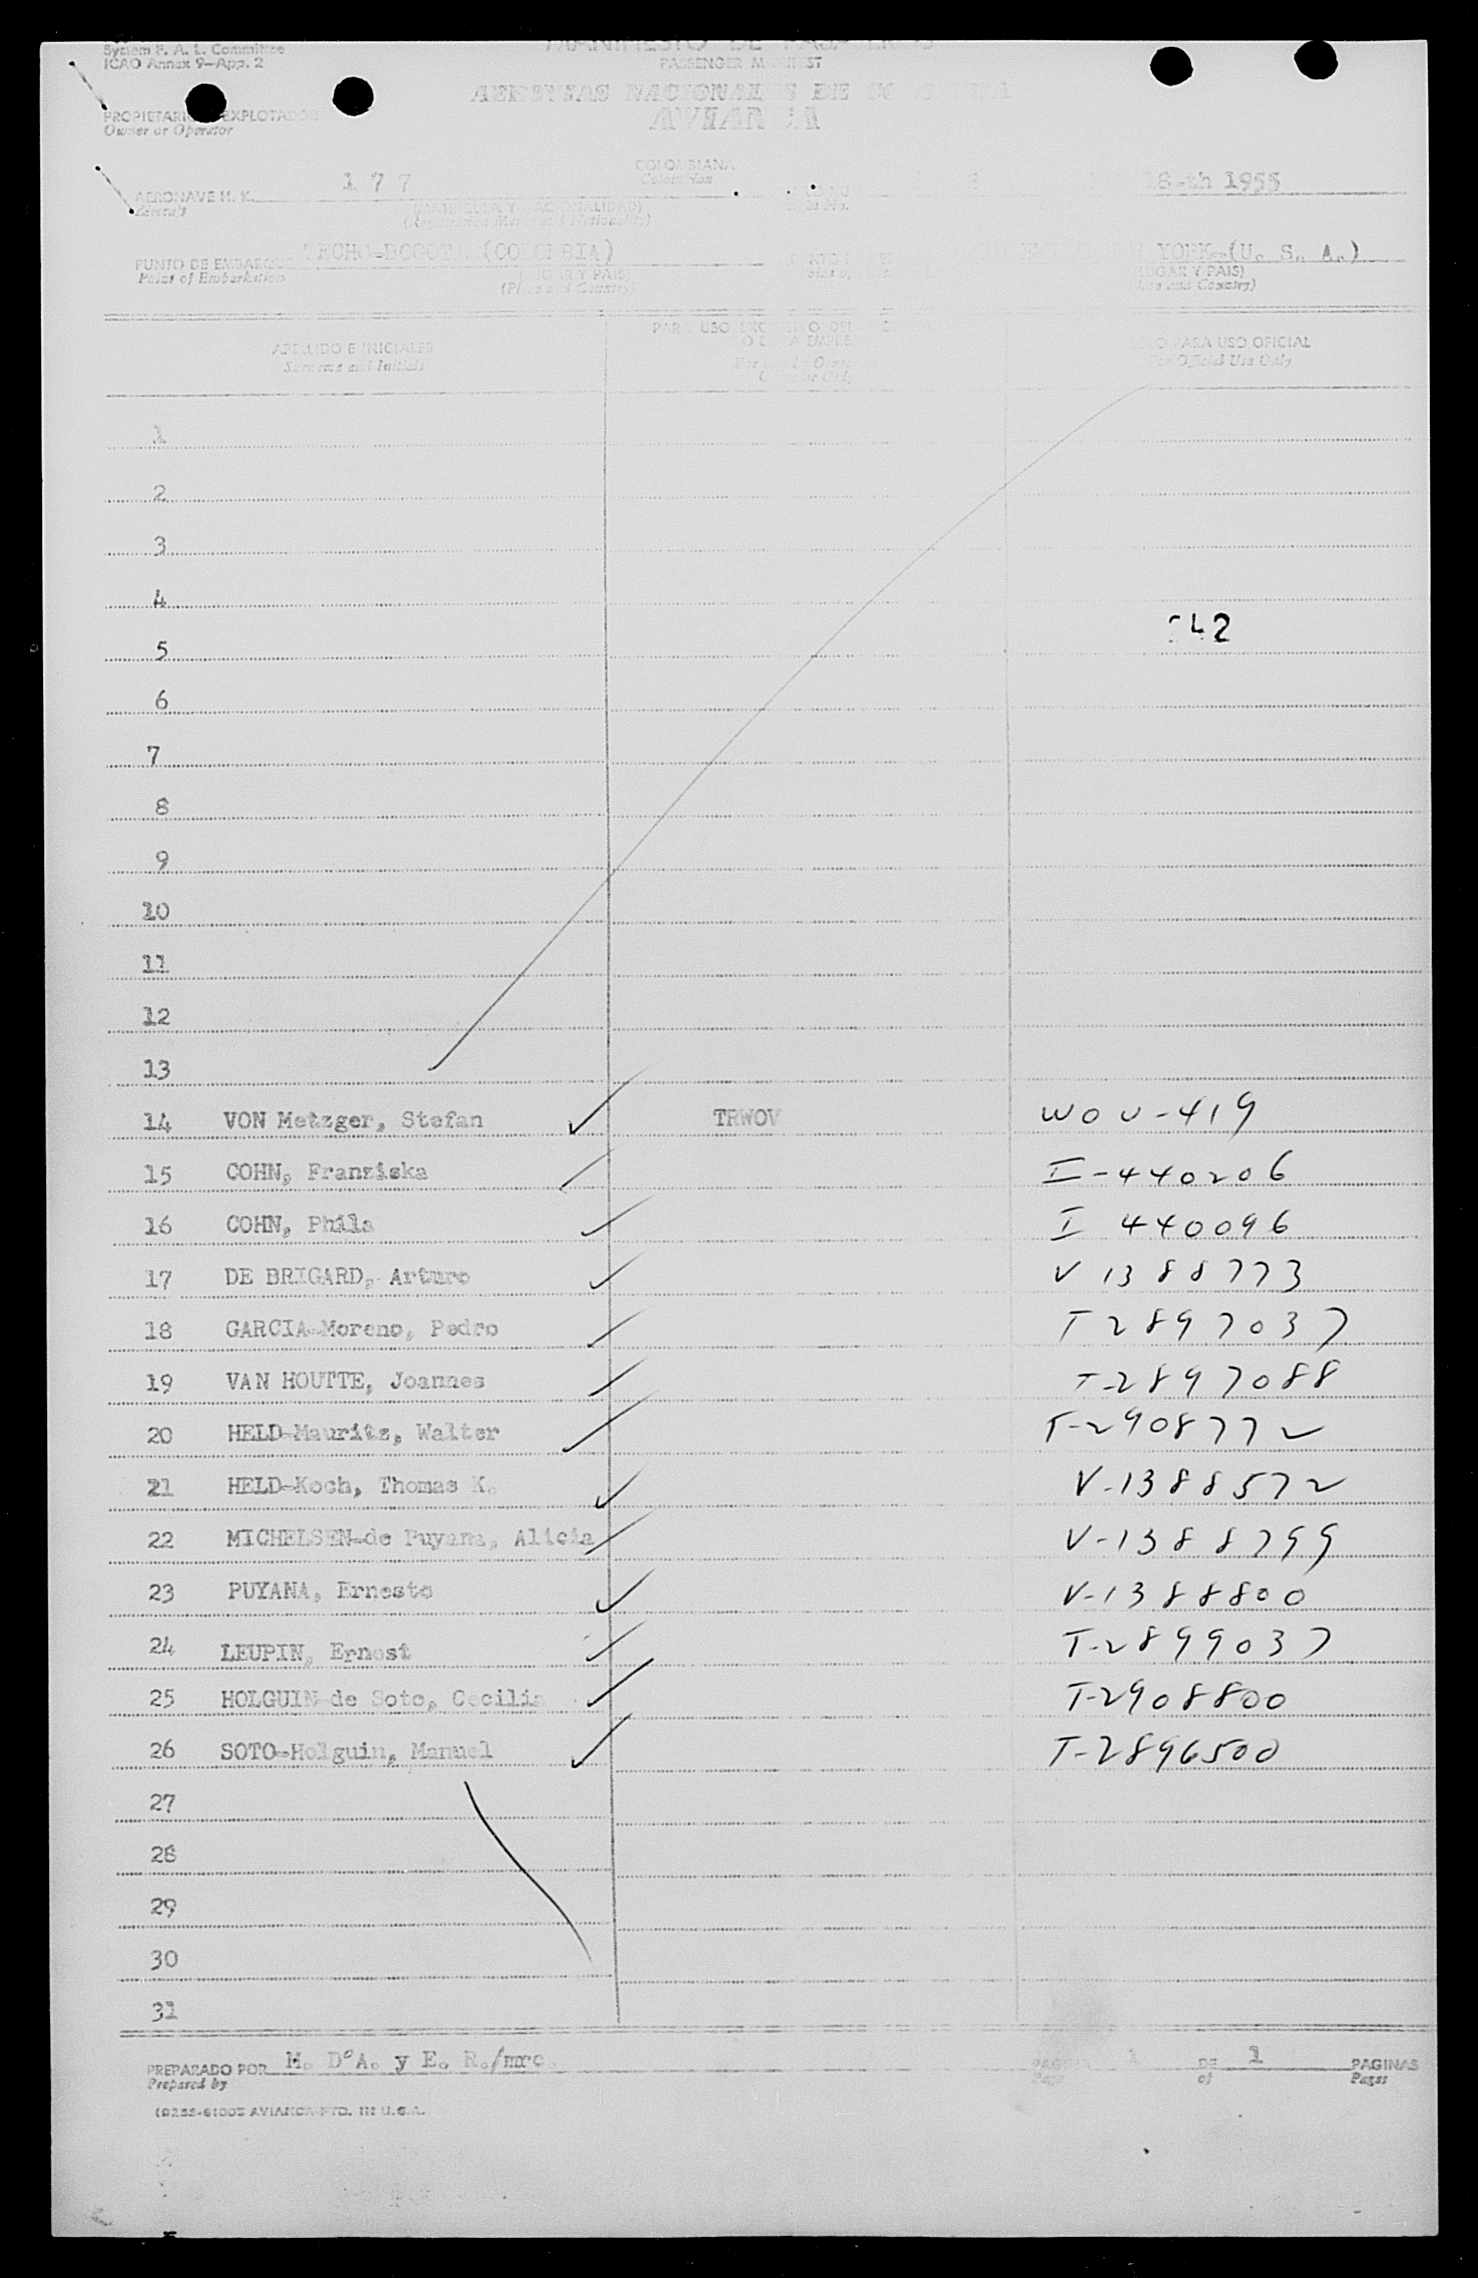 System F. A. L. Committee
ICAO Annex 9-App. 2
MANIFIESTO DE
PASSENGER MANIFEST
AEROVIAS NACIONALES DE
PROPIETARIO EXPLOTADOR
Owner or Operator
COLOMBIANA
Colombian
AERONAVE H. K. 177 18-th 1955
Aircraft
PUNTO DE EMBARQUE TECHO-BOGOTA (COLOMBIA) YORK-(U. S. A.)
Point of Embarkation
(LUGAR Y PAIS) (LUGAR Y PAIS)
(Place and Country) and Country)
APELLIDO E INICIALES PARA USO SOLO PARA USO OFICIAL
Surname and Initials For Official Use Only
1
2
3
4
5
6
7
8
9
10
11
12
13
14 VON Metzger, Stefan TRWOV WOV-419
15 COHN, Franziska I-440206
16 COHN, Phila I 440096
17 DE BRIGARD, Arturo V 1388773
18 GARCIA-Moreno, Pedro T 2897037
19 VAN HOUTTE, Joannes T-2897088
20 HELD-Mauritz, Walter T-2908772
21 HELD-Koch, Thomas K. V-1388572
22 MICHELSEN-de Puyana, Alicia V-1388799
23 PUYANA, Ernesto V-1388800
24 LEUPIN, Ernest T-2899037
25 HOLGUIN-de Soto, Cecilia T-2908800
26 SOTO-Holguin, Manuel T-2896500
27
28
29
30
31
PREPARADO POR H. D°A. y E. R./mrc. PAGINA 1 DE 1 PAGINAS
Prepared by Page of Pages
AVIANCA-PTD. IN U.S.A.